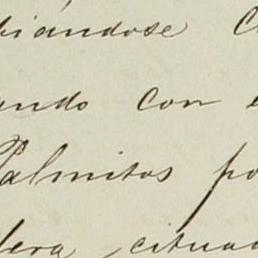 biándose
ando con
Palmitos po
dera, situad